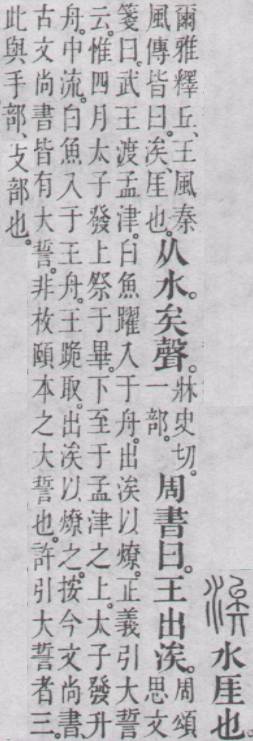 涘水厓也。
爾雅釋丘、王風秦
風傳皆曰。涘、厓也。
从水。矣聲。
牀史切。
一部。
周書曰。王出涘。
周頌
思文
箋曰。武王渡孟津。白魚躍入于舟。出涘以燎。正義引大誓
云。惟四月太子發上祭于畢。下至于孟津之上。太子發升
舟。中流。白魚入于王舟。王跪取。出涘以燎之。按今文尚書、
古文尚書皆有大誓。非枚頤本之大誓也。許引大誓者三。
此與手部、攴部也。